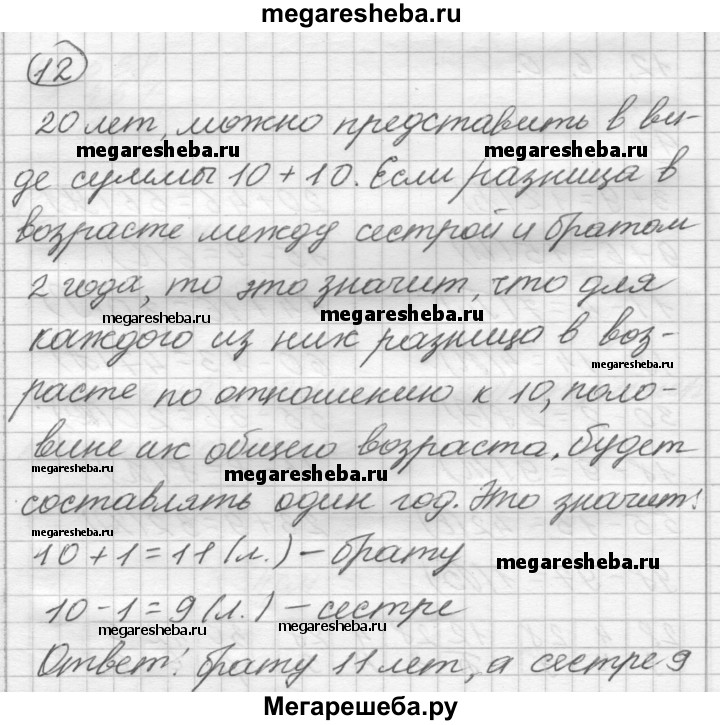 megaresheba.ru
12
20 лет, можно представить в ви-
megaresheba.ru
megaresheba.ru
де суммы 10 + 10. Если разница в
возрасте между сестрой и братом
2 года, то это значит, что для
megaresheba.ru
megaresheba.ru
каждого из них разница в воз-
megaresheba.ru
расте по отношению к 10, поло-
вине их общего возраста, будет
megaresheba.ru
megaresheba.ru
составлять один год. Это значит:
megaresheba.ru
10 + 1 = 11 (л.) – брату
megaresheba.ru
10 - 1 = 9 (л.) – сестре
megaresheba.ru
megaresheba.ru
Ответ: брату 11 лет, а сестре 9
Мегарешеба.ру